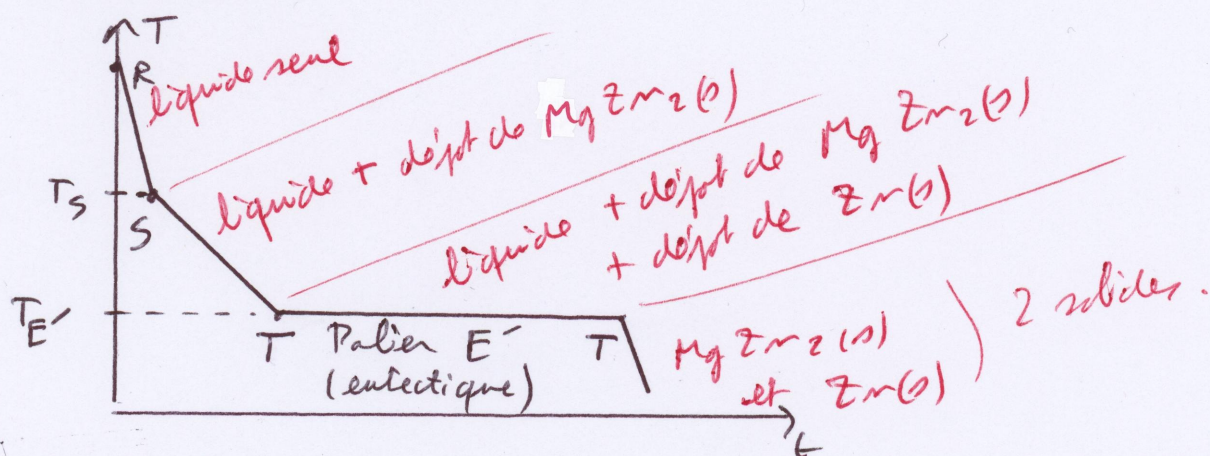 T
R
liquide seul
liquide + dépôt de MgZn2(s)
TS
S
liquide + dépôt de MgZn2(s)
+ dépôt de Zn(s)
TE'
T Palier E' T
(eutectique)
MgZn2(s)
et Zn(s)
2 solides.
t